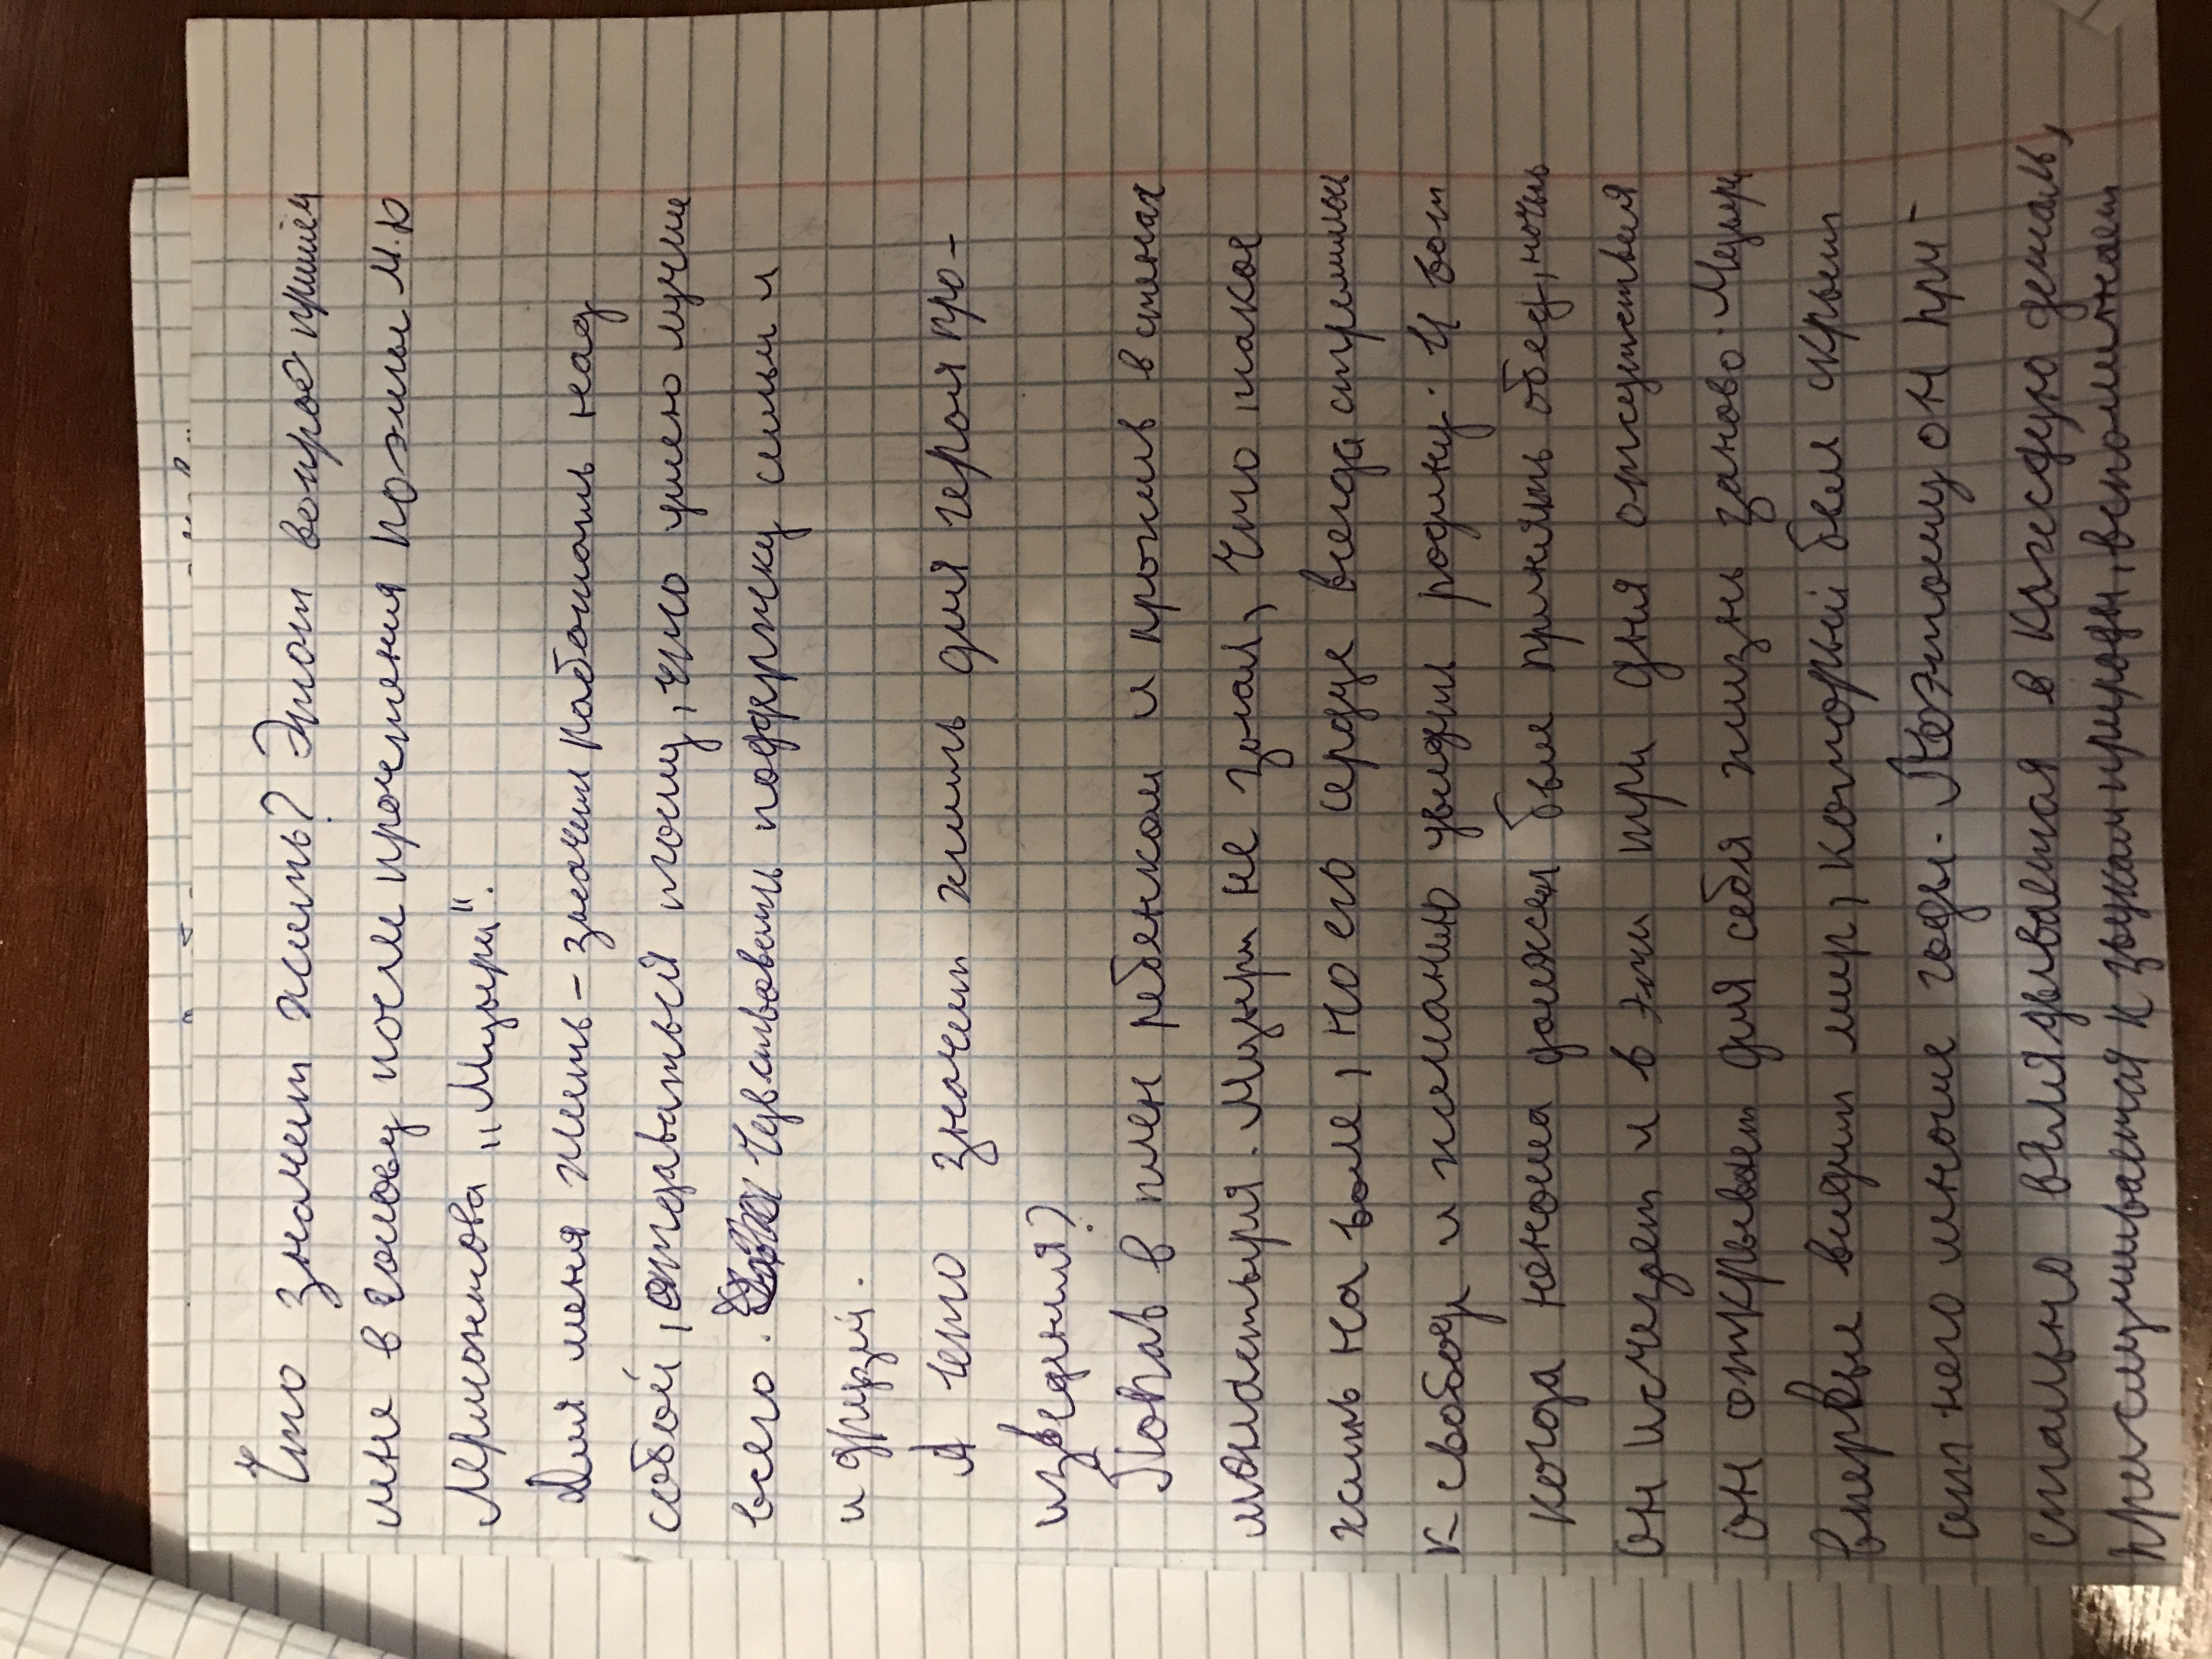 Что значит жить? Этот вопрос пришёл
мне в голову после прочтения поэмы М.Ю
Лермонтова "Мцыри".
Для меня жить - значит работать над
собой, отдаваться тому, что умею лучше
всего. Чувствовать поддержку семьи и
и друзей.
А что значит жить для героя про-
изведения?
Попав в плен ребёнком и прожив в стенах
монастыря. Мцыри не знал, что такое
жить на воле, но его сердце всегда стремилось
к свободе и желанию увидеть родину. И вот
когда юноша должен был принять обет, ночью
он исчезает и в эти три дня отсутствия
он открывает для себя жизнь заново. Мцыри
впервые видит мир, который был скрыт
от него многие годы. Поэтому он при-
стально вглядывается в каждую деталь,
прислушивается к звукам природы, вспоминает